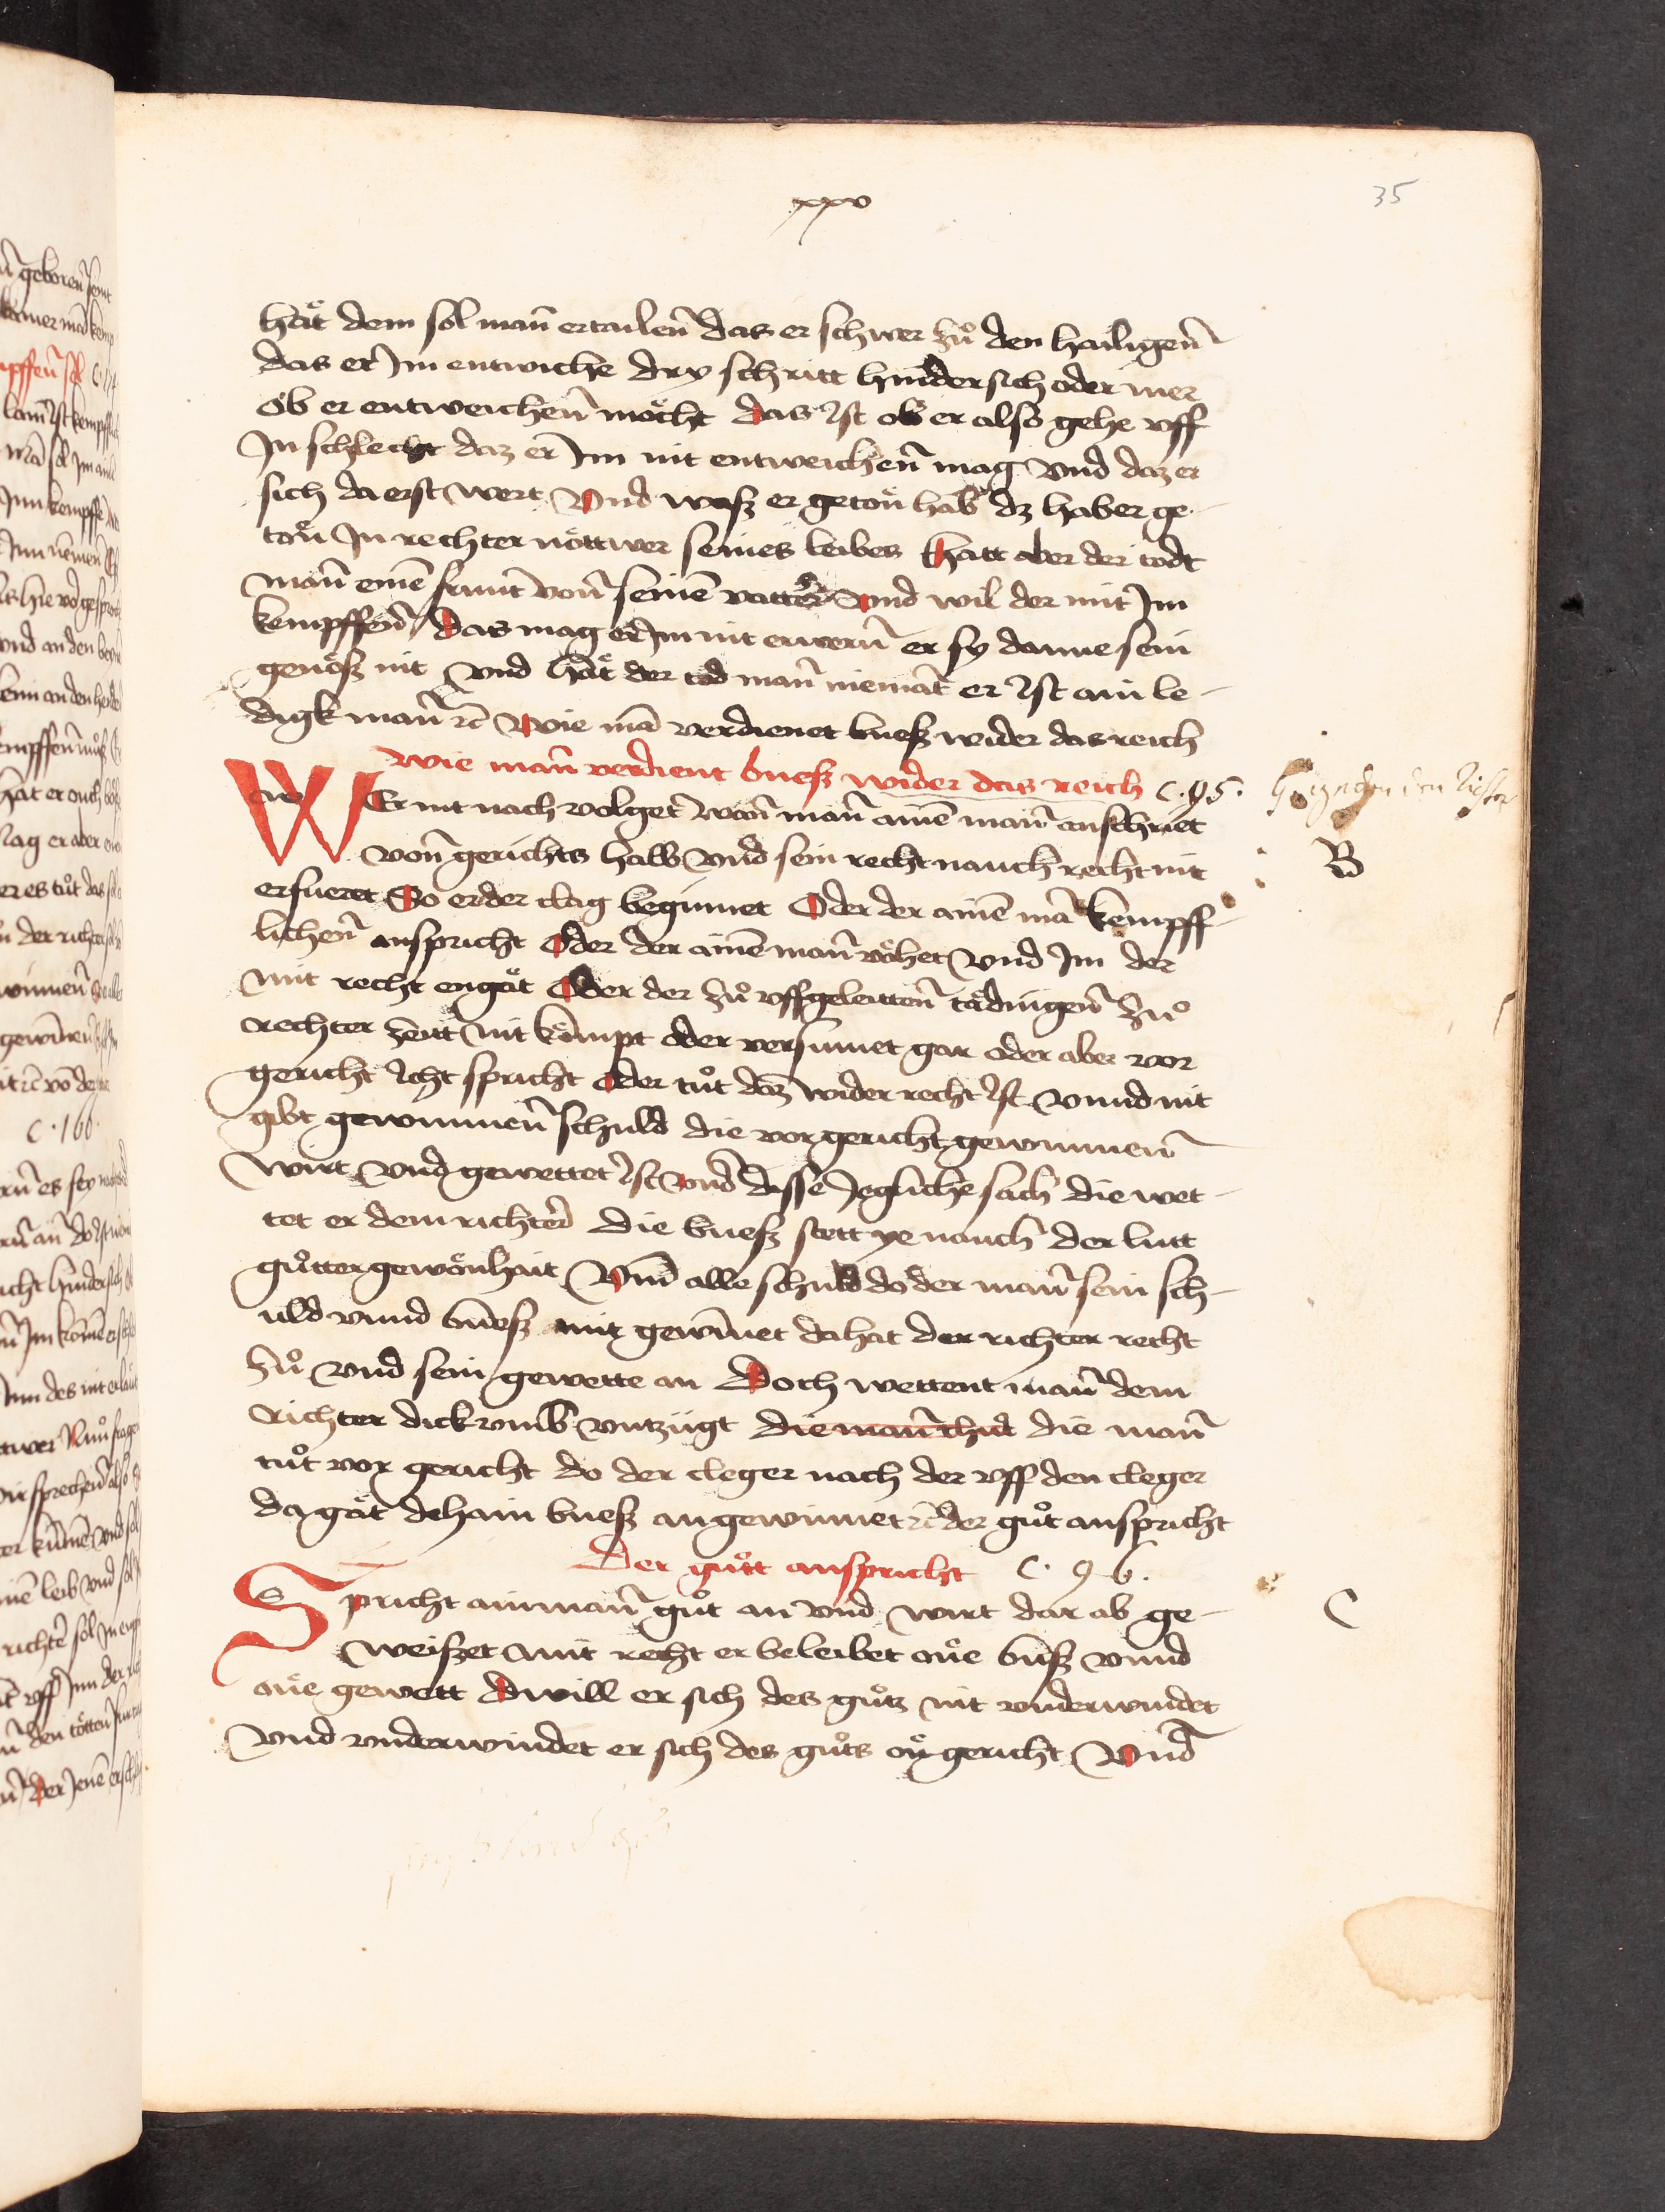 xxxv
35
hät dem sol man̄ ertailen̄ das er schwer zů den hailigen̄
das er Im entwiche dry schritt hindersich oder mer
ob er entweichen̄ möcht das Ist ob er also gehe vff
In schlecht daz er Im nit entweichen̄ mag vnd daz er
sich da erst wert Vnd wasz er getoũ hab dz hab er ge-
toũ In rechter nöttwer seines leibes Hatt aber der todt
man̄ einē frunt von̄ seinē vatter Vnd wil der mit Im
kempffen̄ Das mag er Im nit erwern̄ er sy danne sein
genösz nit Vnd hät der tod man̄ niemāt er Ist ain le-
digk man̄ ⁊c Wie mā verdienet buesz wider das reich
Wie man̄ verdient buesz wider das reich C. 95.
WEr nit nach volget wan̄ man̄ ainē man̄ anschriet
von̄ gerichts halb Vnd sein recht nauch recht nit
B
erfueret So er der clag beginnet Oder der ainē mā kempff-
lichen̄ anspricht Oder der ainē man̄ vöhet Vnd Im der
mit recht engät Oder der zů vffgeleitten̄ tädingen̄ zů
rechter zeitt nit kömpt oder versumet gar oder aber vor
gericht Icht spricht Oder tůt daz wider recht Ist Vnnd nit
gibt gewunnen̄ schuld die vor gericht gewunnen̄
wirt Vnd gewettet Ist Vnd disse Jegliche sach die wet-
tet er dem richter die buesz stett ye nauch der lutt
gůtter gewönhait Vm̄ alle schuld do der man̄ sein sch-
uld vnnd buesz mit gewīnet da hat der richter recht
zů vnd sein gewette an Doch wettent man̄ dem
richter dick vmb vntzügt die man̄ thut die man̄
tůt vor gericht do der cleger nach der vff den cleger
da gät dehain buesz an gewinnet ⁊c der gůt anspricht
Der gůtt anspricht C. 96.
Spricht ain man̄ gůt an Vnd wirt dar ab ge-
C
weiszet mit recht er beleibet one bůsz vnnd
one gewett Dwill er sich des gůtz nit vnderwindet
Vnd vnderwindet er sich des gůts on gericht Vnd